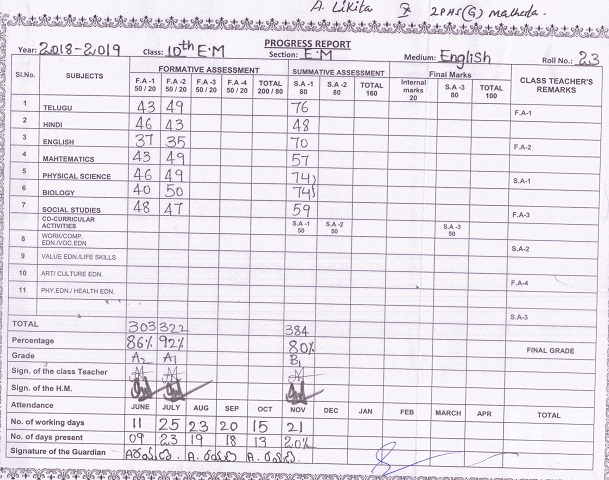 A. Likita ZPHS(G) Matheda.
PROGRESS REPORT
Year: 2018-2019 Class: 10th E.M Section: E.M Medium: English Roll No.: 23
Sl.No. SUBJECTS FORMATIVE ASSESSMENT SUMMATIVE ASSESSMENT Final Marks CLASS TEACHER'S REMARKS
F.A -1 50 / 20 F.A -2 50 / 20 F.A -3 50 / 20 F.A -4 50 / 20 TOTAL 200 / 80 S.A -1 80 S.A -2 80 TOTAL 160 Internal marks 20 S.A -3 80 TOTAL 100
1 TELUGU 43 49 76 F.A-1
2 HINDI 46 43 48
3 ENGLISH 37 35 70 F.A-2
4 MAHTEMATICS 43 49 57
5 PHYSICAL SCIENCE 46 49 74 S.A-1
6 BIOLOGY 40 50 74
7 SOCIAL STUDIES 48 47 59 F.A-3
CO-CURRICULAR ACTIVITIES S.A -1 50 S.A -2 50 S.A -3 50
8 WORK/COMP. EDN./VOC.EDN S.A-2
9 VALUE EDN./LIFE SKILLS
10 ART/ CULTURE EDN. F.A-4
11 PHY.EDN./ HEALTH EDN.
S.A-3
TOTAL 303 322 384
Percentage 86% 92% 80% FINAL GRADE
Grade A2 A1 B1
Sign. of the class Teacher
Sign. of the H.M.
Attendance JUNE JULY AUG SEP OCT NOV DEC JAN FEB MARCH APR TOTAL
No. of working days 11 25 23 20 15 21
No. of days present 09 23 19 18 13 20%
Signature of the Guardian